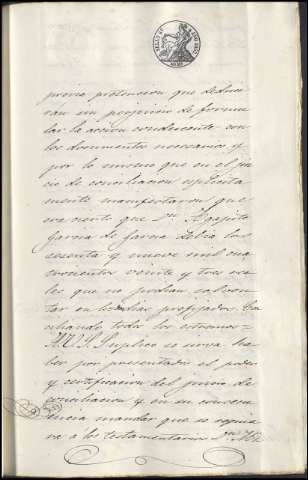 previa pretencion que deduci
rán en perjuicio de formu
lar la accion conducente con
los documentos necesarios y
por lo mismo que en el jui
cio de conciliacion esplicita
mente manifestaron que
era cierto que Dn. Agapito
Garcia de Garcia debia los
sesenta y nueve mil cua
trocientos veinte y tres rea
les que no podian solven
tar en los dias prefijados.
todo los estremos=
A V. S. Suplico se sirva ha
ber por presentados el poder
y certificacion del juicio de
conciliacion y en su consecu
encia mandar que se requie
ra á los testamentarios Dn.